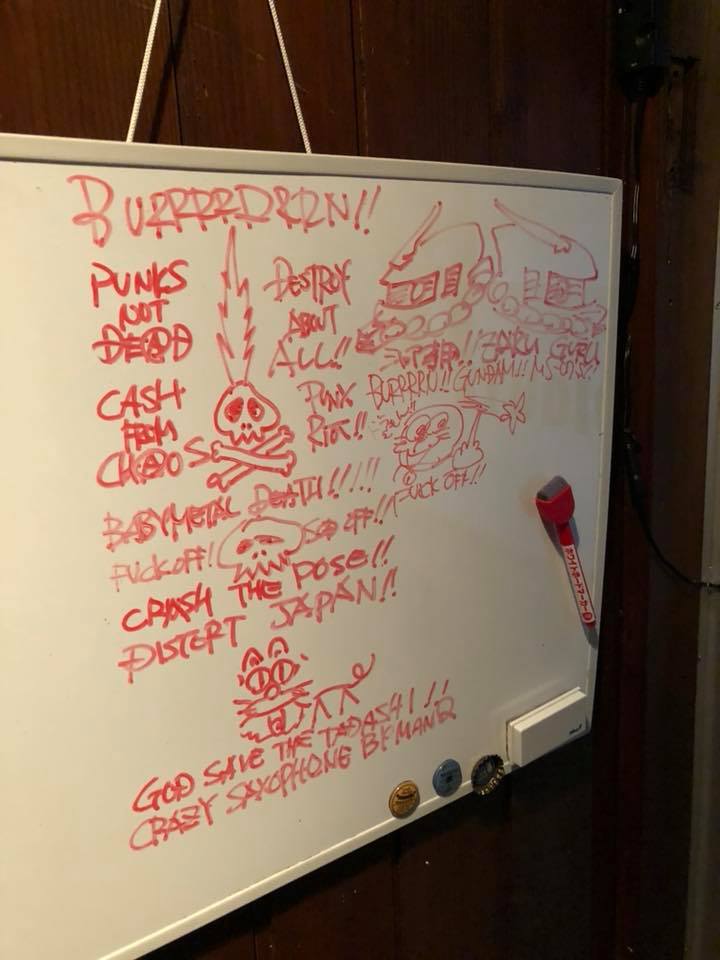 BURRRRRRN!!
PUNKS
NOT
DE@D
DESTROY
ABOUT
ALL!!
CASH
FROM
CH@OS
PUNX
RIOT!!
ZAKU GUFU
BURRRRN!! GUNDAM!! MS-07S!!
FUCK OFF!!
BABYMETAL DEATH!!!!!
FUCK OFF!
SOD OFF!!
CRASH THE POSE!!
DISTERT JAPAN!!
GOD SAVE THE TADASHI!!
CRAZY SAXOPHONE BY MAN
ホワイトボードマーカー